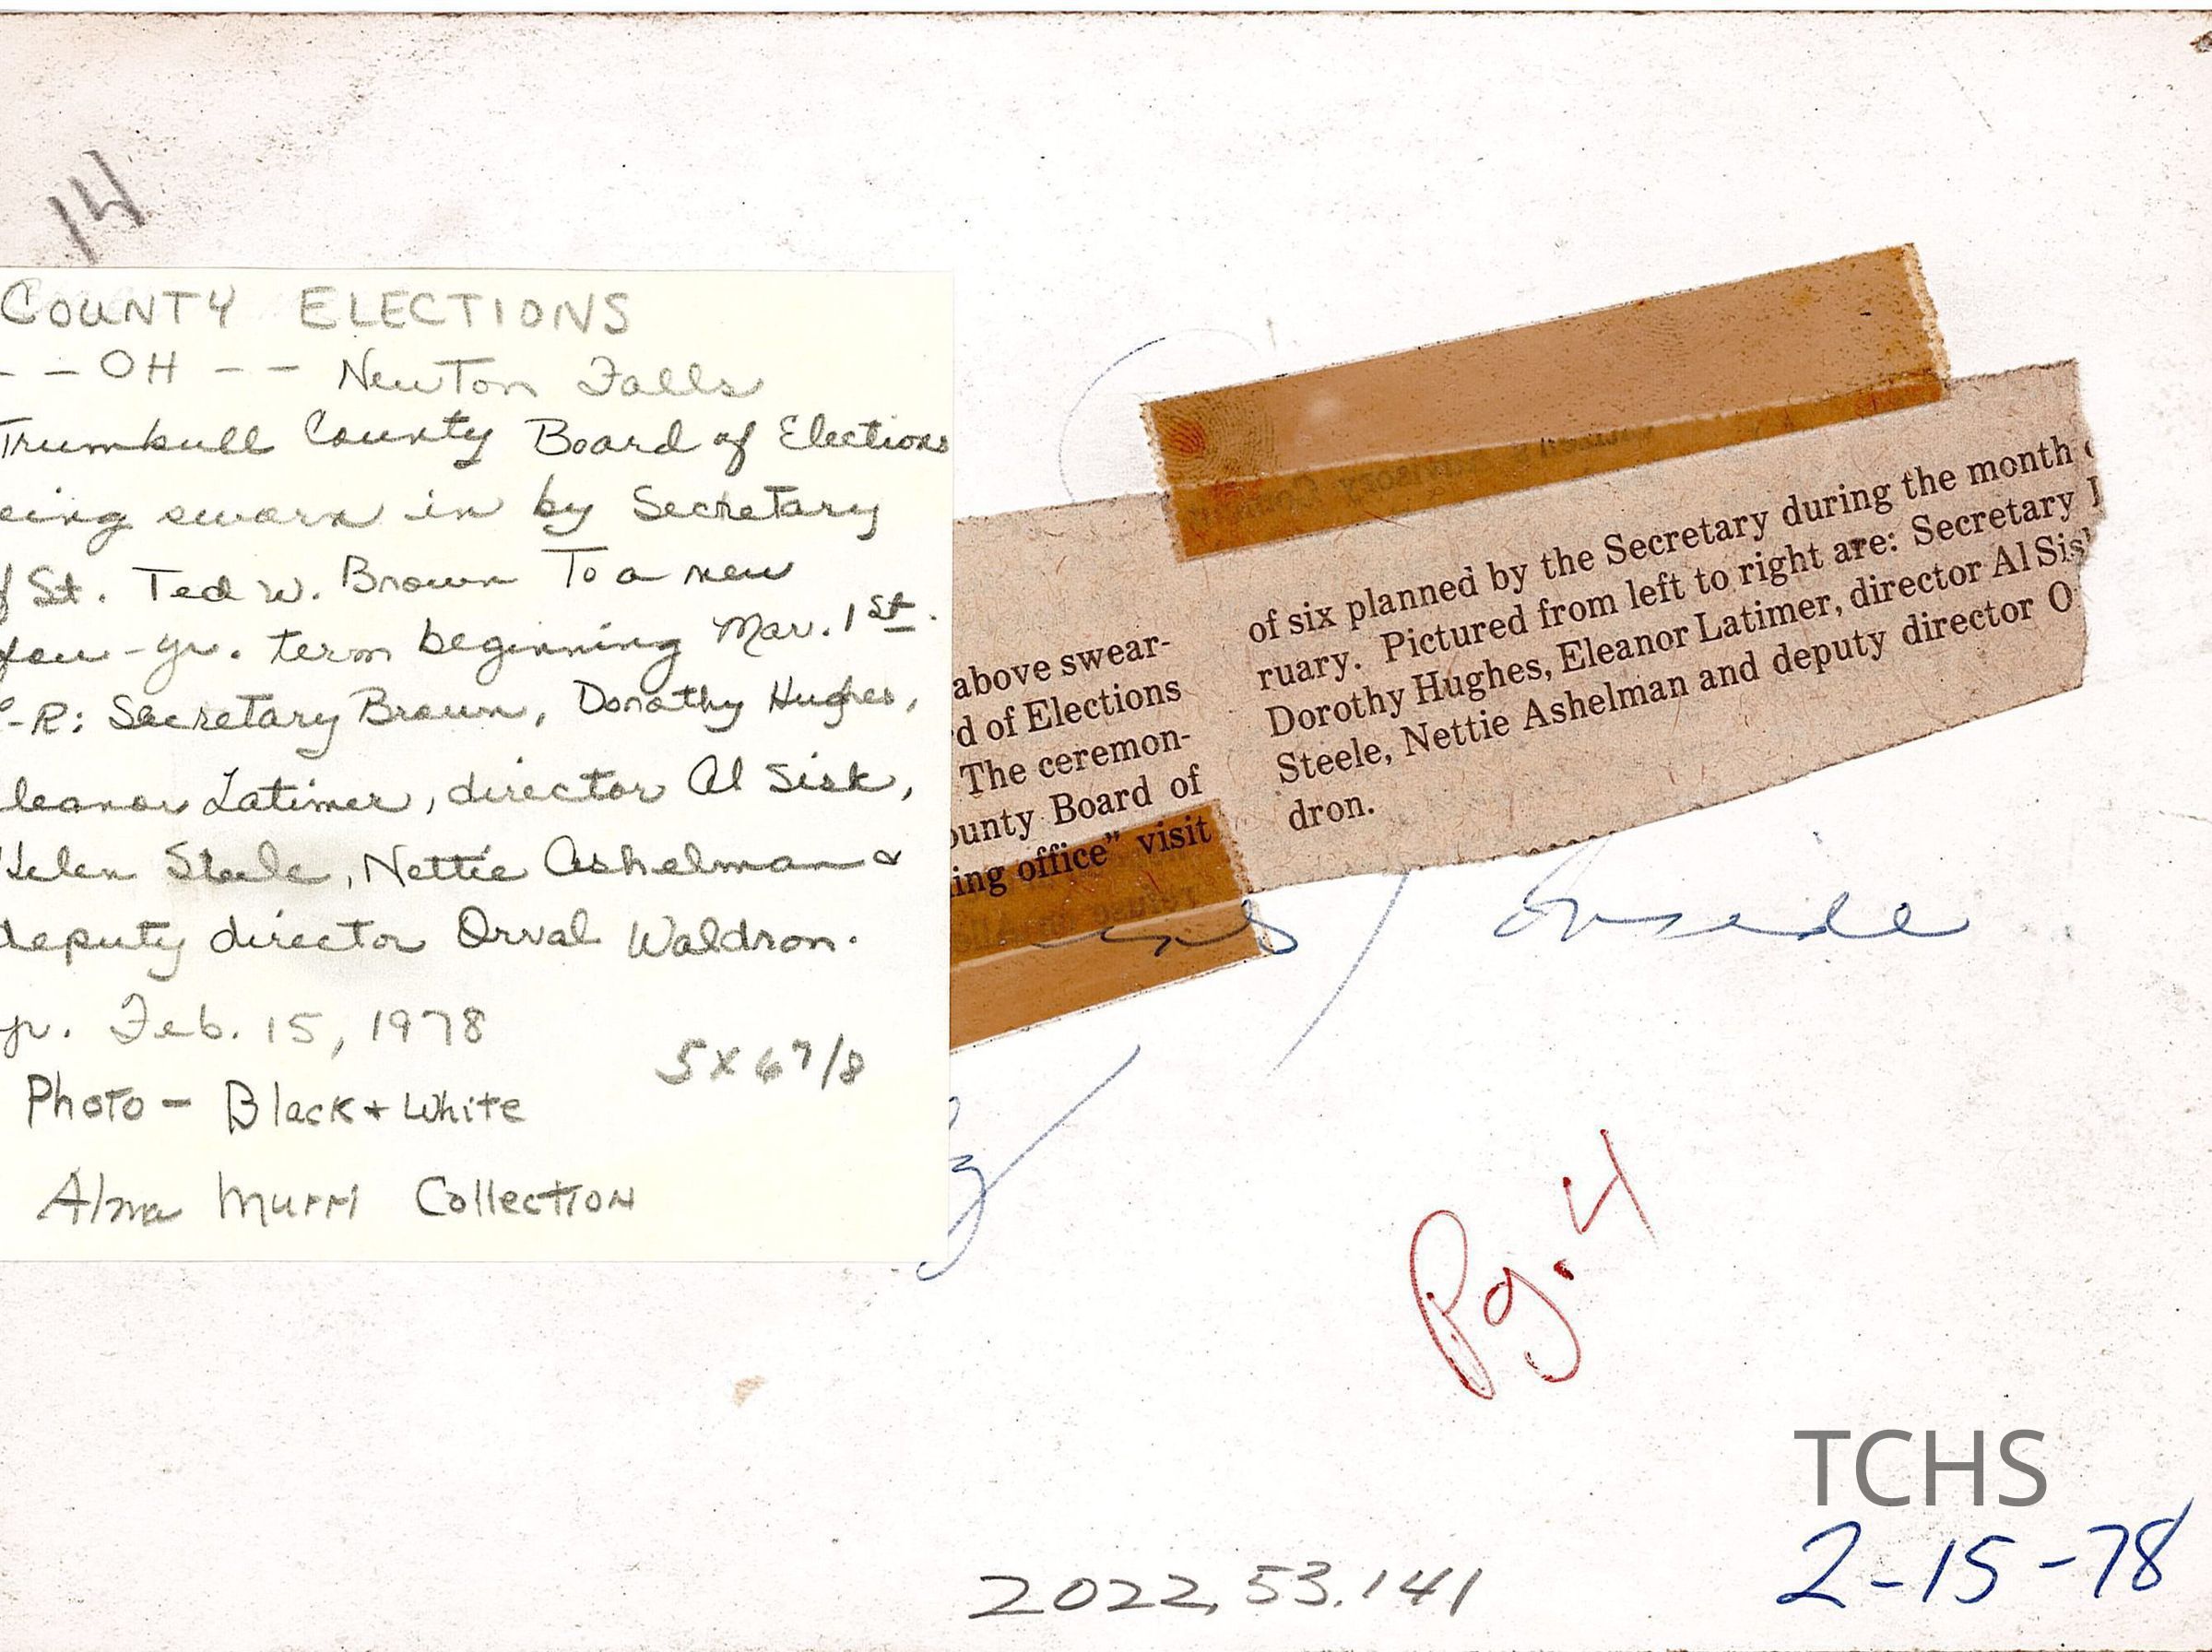 14
COUNTY ELECTIONS
- - OH - - Newton Falls
Trumbull County Board of Elections
eing sworn in by Secretary
f St. Ted W. Brown To a new
fou-yr. term beginning Mar. 1st.
-R: Secretary Brown, Dorothy Hughes,
leanor Latimer, director Al Sisk,
Helen Steele, Nettie Ashelman &
deputy director Orval Waldron.
Feb. 15, 1978
5 x 6 7/8
Photo - Black & White
Alma Murri Collection
above swear-
d of Elections
The ceremon-
ounty Board of
ing office" visit
of six planned by the Secretary during the month
ruary. Pictured from left to right are: Secretary
Dorothy Hughes, Eleanor Latimer, director Al Sis
Steele, Nettie Ashelman and deputy director O
dron.
inside
Pg. 4
TCHS
2-15-78
2022.53.141